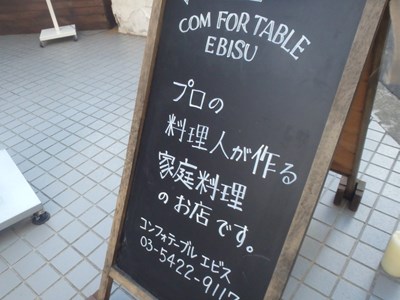 COM FOR TABLE
EBISU
プロの
料理人が作る
家庭料理
のお店です。
コンフォテーブル エビス
03-5422-9117